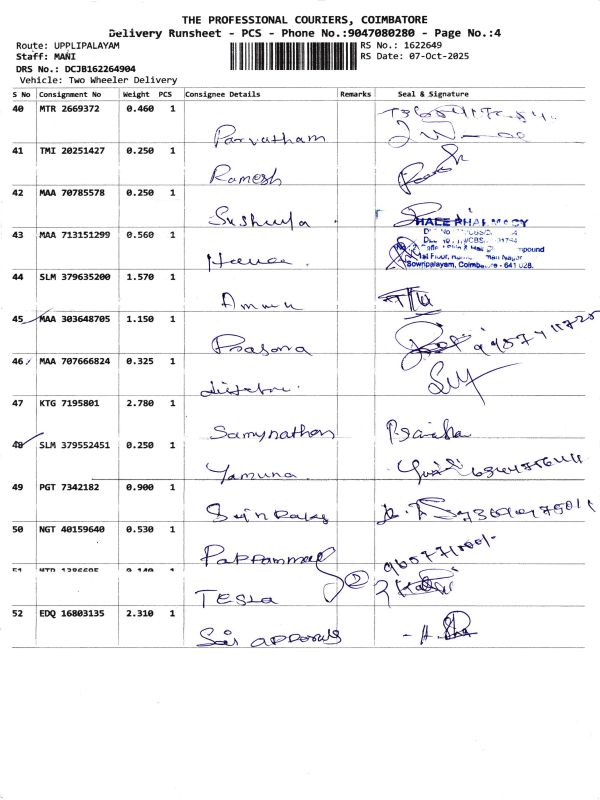 THE PROFESSIONAL COURIERS, COIMBATORE
Delivery Runsheet - PCS - Phone No.:9047080280 - Page No.:4
Route: UPPLIPALAYAM
RS No.: 1622649
Staff: MANI
RS Date: 07-Oct-2025
DRS No.: DCJB162264904
Vehicle: Two Wheeler Delivery
S No Consignment No Weight PCS Consignee Details Remarks Seal & Signature
40 MTR 2669372 0.460 1
Parvatham
41 TMI 20251427 0.250 1
Ramesh
42 MAA 70785578 0.250 1
Sushuya
43 MAA 713151299 0.560 1
HALE PHARMACY
1st Floor,
Sowripalayam, Coimbatore - 641 028.
44 SLM 379635200 1.570 1
45 MAA 303648705 1.150 1
Prasona
46 MAA 707666824 0.325 1
47 KTG 7195801 2.780 1
Samynathan
48 SLM 379552451 0.250 1
Yamuna
49 PGT 7342182 0.900 1
50 NGT 40159640 0.530 1
Pappammal
51 MTR 1386695 0.140 1
TESLA
52 EDQ 16803135 2.310 1
Sai apparels